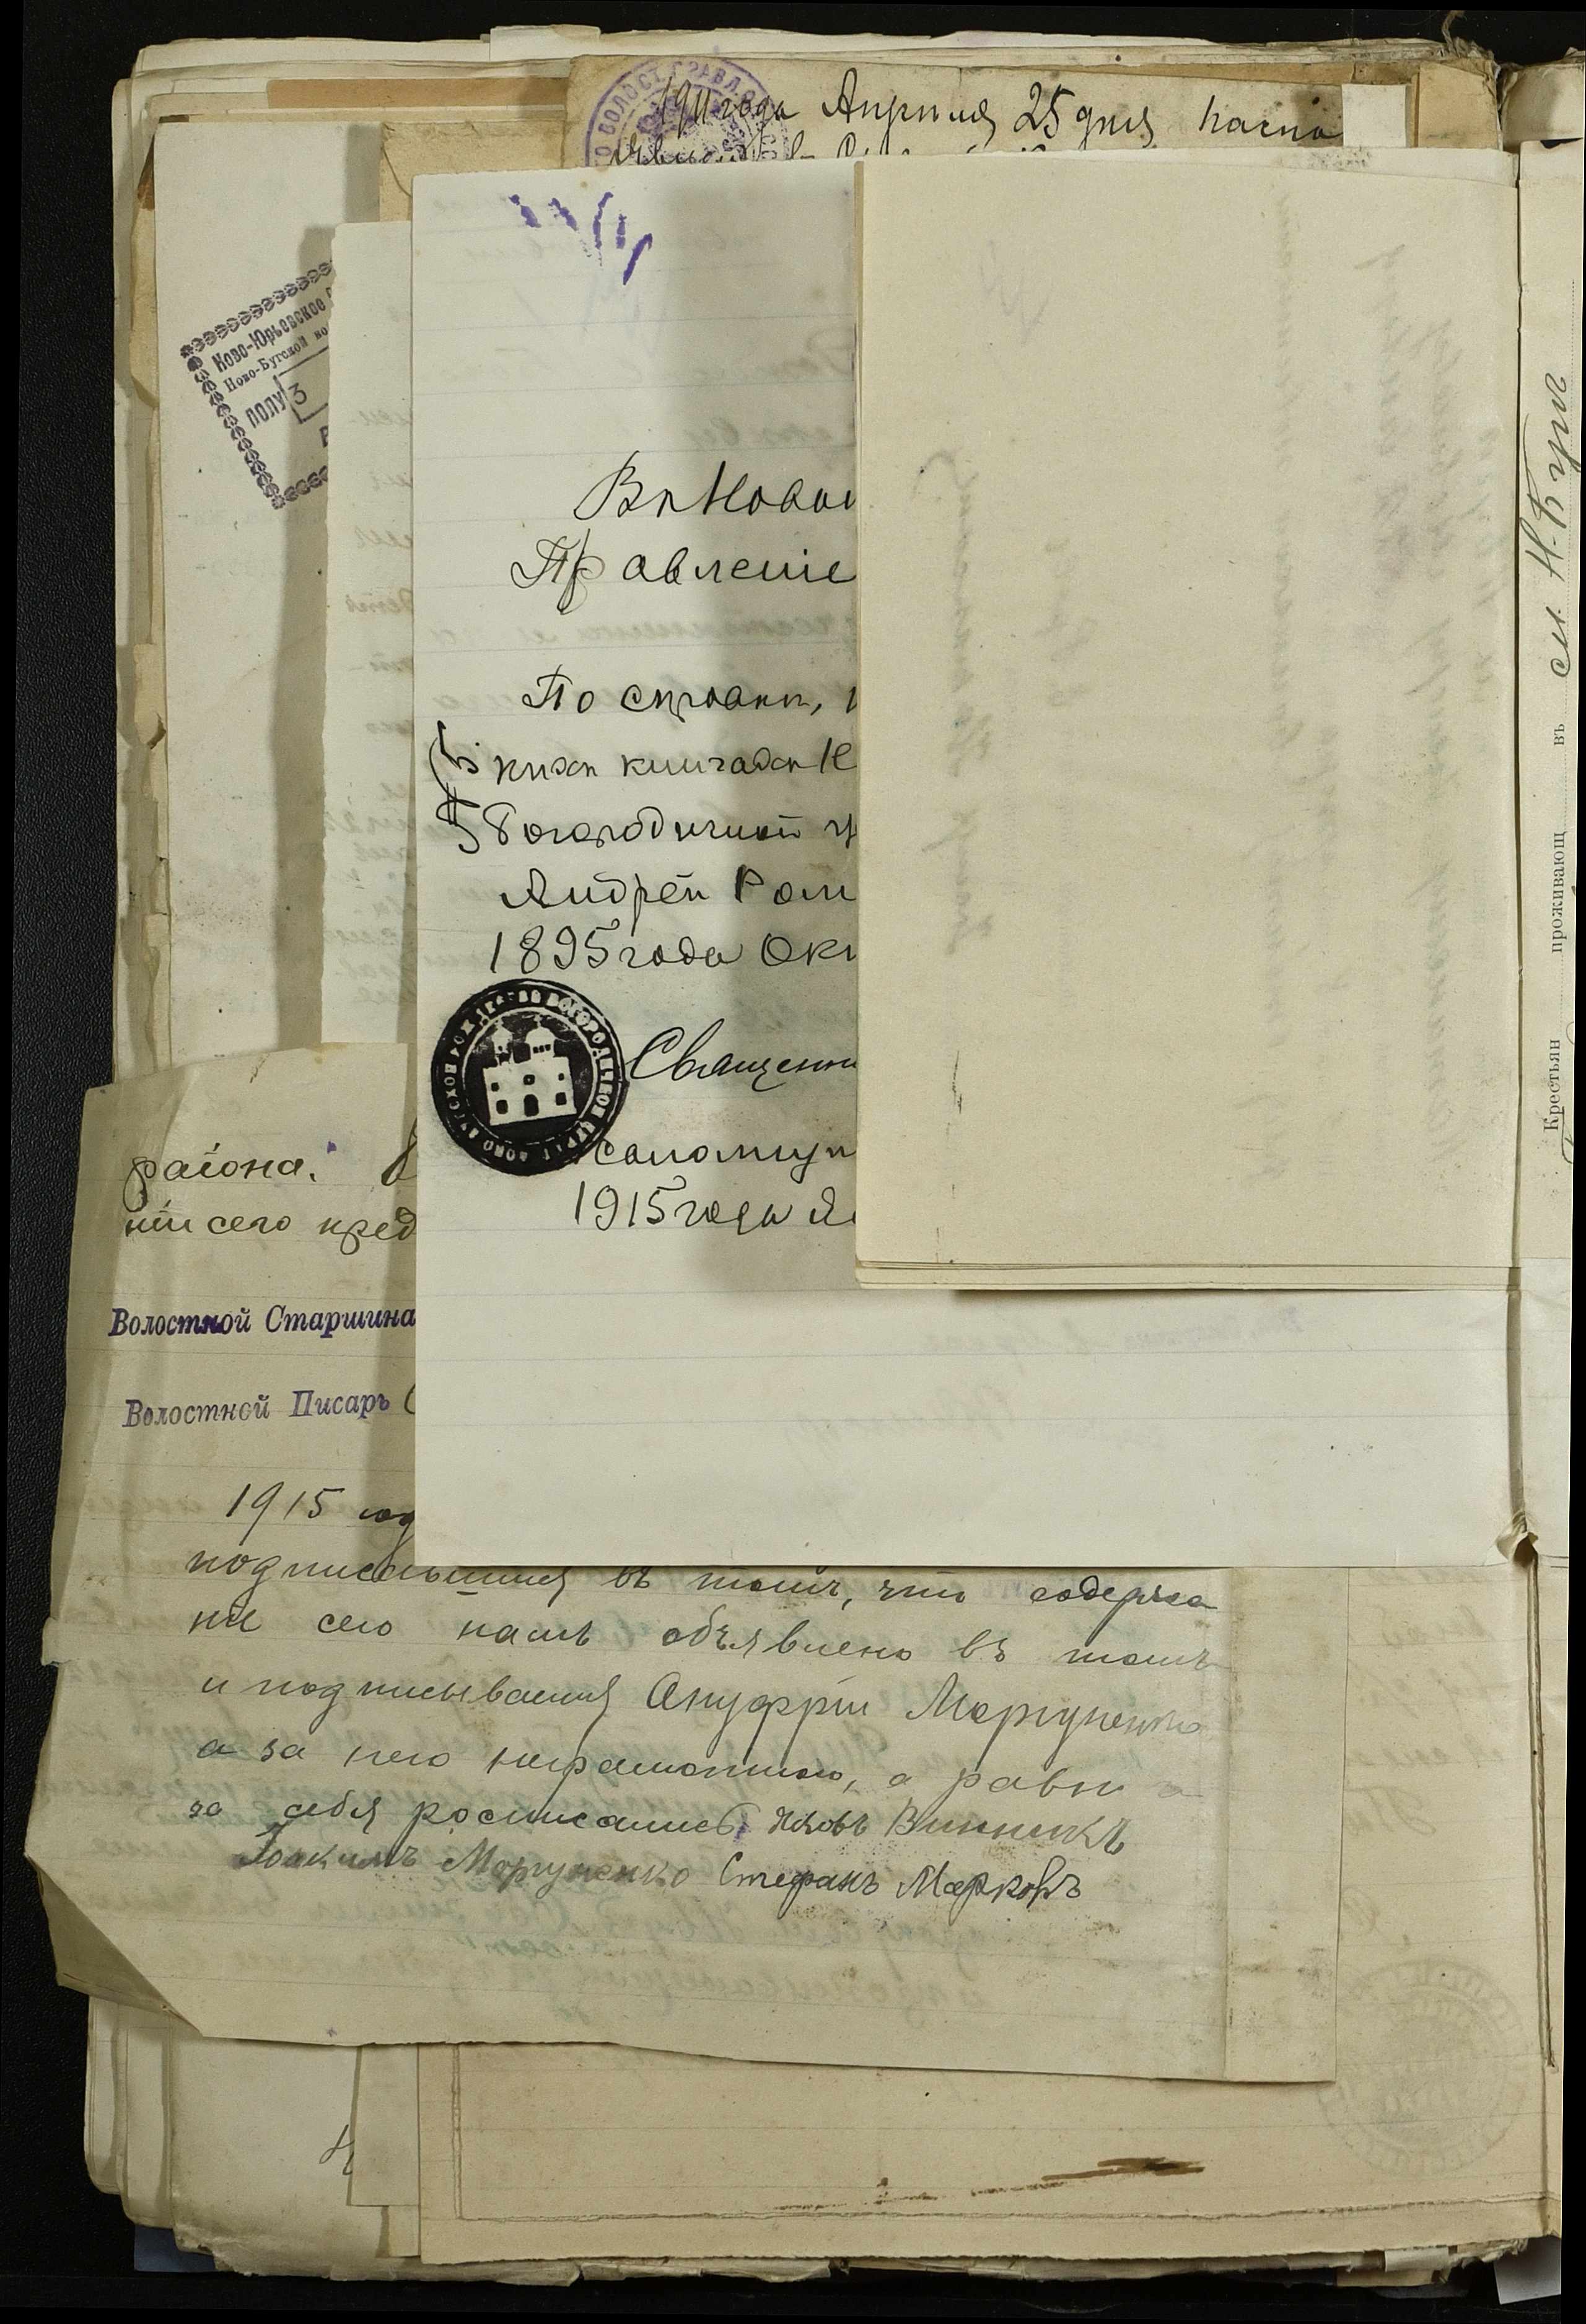 1911 года Апрѣля 25 дня
Ново-Юрьевское
Ново-Бугской во
ПОЛУ
3
Въ Новоб
Правленіе
По справкѣ,
Богородичной ц
Андрей Ром
1895 года Окт
Священни
Псаломщи
1915 года Ян
района.
ніи сего пред
Волостной Старшина
Волостной Писарь
1915 год
подписавшимися въ томъ, что содержа
ніе сего намъ объявлено въ томъ
и подписываемся Онуфрій Моргуненко
а за него неграмотного, а равно
за себя росписались Яковъ Винникъ
Іоакимъ Моргуненко Стефанъ Марковъ
Крестьян проживающ въ см. Н-Буг